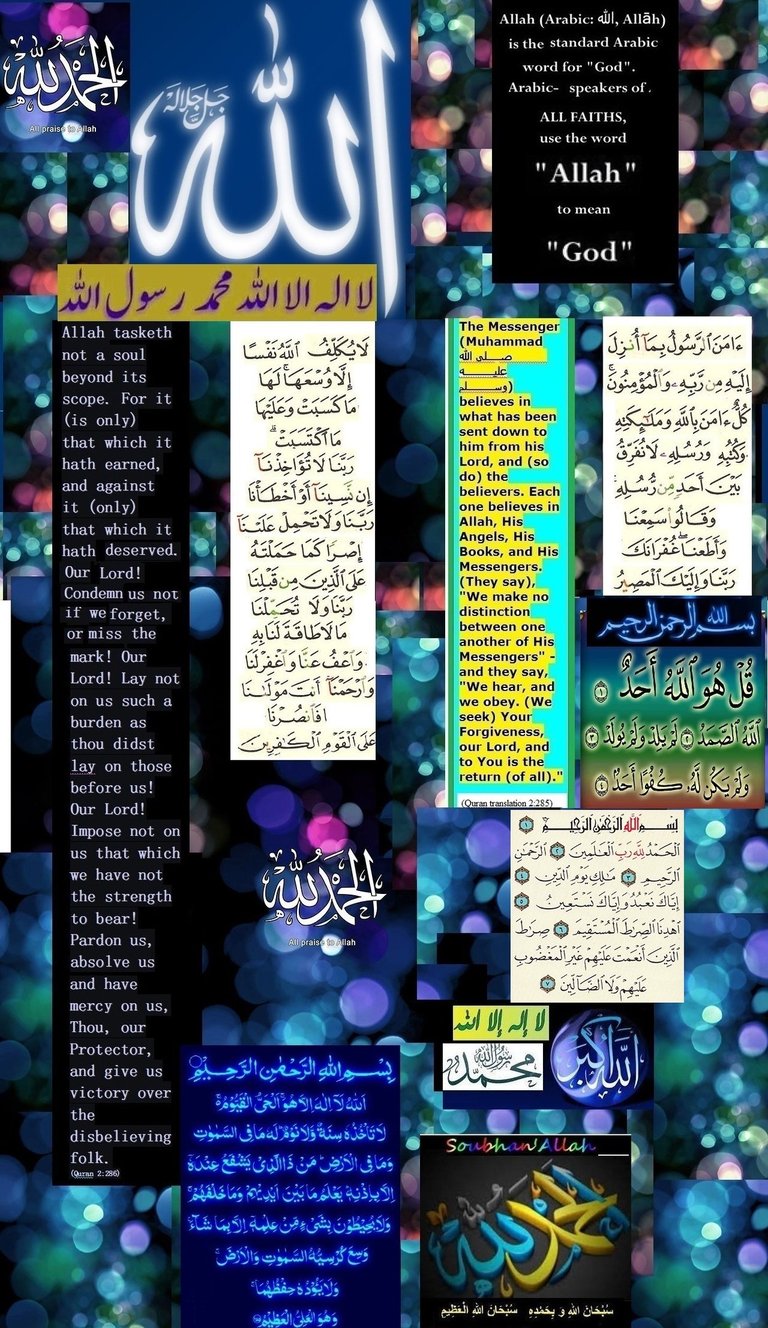 الحمد لله
All praise to Allah
الله
جل جلاله
Allah (Arabic: ﷲ, Allāh)
is the standard Arabic
word for "God".
Arabic- speakers of.
ALL FAITHS,
use the word
"Allah"
to mean
"God"
لا اله الا الله محمد رسول الله
Allah tasketh
not a soul
beyond its
scope. For it
(is only)
that which it
hath earned,
and against
it (only)
that which it
hath deserved.
Our Lord!
Condemn us not
if we forget,
or miss the
mark! Our
Lord! Lay not
on us such a
burden as
thou didst
lay on those
before us!
Our Lord!
Impose not on
us that which
we have not
the strength
to bear!
Pardon us,
absolve us
and have
mercy on us,
Thou, our
Protector,
and give us
victory over
the
disbelieving
folk.
(Quran 2:286)
لَا يُكَلِّفُ اللَّهُ نَفْسًا
إِلَّا وُسْعَهَا ۚ لَهَا
مَا كَسَبَتْ وَعَلَيْهَا
مَا اكْتَسَبَتْ ۗ
رَبَّنَا لَا تُؤَاخِذْنَا
إِن نَّسِينَا أَوْ أَخْطَأْنَا
رَبَّنَا وَلَا تَحْمِلْ عَلَيْنَا
إِصْرًا كَمَا حَمَلْتَهُ
عَلَى الَّذِينَ مِن قَبْلِنَا
رَبَّنَا وَلَا تُحَمِّلْنَا
مَا لَا طَاقَةَ لَنَا بِهِ
وَاعْفُ عَنَّا وَاغْفِرْ لَنَا
وَارْحَمْنَا أَنتَ مَوْلَانَا
فَانصُرْنَا
عَلَى الْقَوْمِ الْكَافِرِينَ
The Messenger
(Muhammad
صلى الله
عليه
وسلم)
believes in
what has been
sent down to
him from his
Lord, and (so
do) the
believers. Each
one believes in
Allah, His
Angels, His
Books, and His
Messengers.
(They say),
"We make no
distinction
between one
another of His
Messengers" -
and they say,
"We hear, and
we obey. (We
seek) Your
Forgiveness,
our Lord, and
to You is the
return (of all)."
(Quran translation 2:285)
ءَامَنَ ٱلرَّسُولُ بِمَآ أُنزِلَ
إِلَيْهِ مِن رَّبِّهِۦ وَٱلْمُؤْمِنُونَ ۚ
كُلٌّ ءَامَنَ بِٱللَّهِ وَمَلَٰٓئِكَتِهِۦ
وَكُتُبِهِۦ وَرُسُلِهِۦ لَا نُفَرِّقُ
بَيْنَ أَحَدٍ مِّن رُّسُلِهِۦ ۚ
وَقَالُوا۟ سَمِعْنَا
وَأَطَعْنَا ۖ غُفْرَانَكَ
رَبَّنَا وَإِلَيْكَ ٱلْمَصِيرُ
بسم الله الرحمن الرحيم
قُلْ هُوَ ٱللَّهُ أَحَدٌ ١
ٱللَّهُ ٱلصَّمَدُ ٢ لَمْ يَلِدْ وَلَمْ يُولَدْ ٣
وَلَمْ يَكُن لَّهُۥ كُفُوًا أَحَدٌۢ ٤
بِسْمِ ٱللَّهِ ٱلرَّحْمَٰنِ ٱلرَّحِيمِ ١
ٱلْحَمْدُ لِلَّهِ رَبِّ ٱلْعَٰلَمِينَ ٢ ٱلرَّحْمَٰنِ
ٱلرَّحِيمِ ٣ مَٰلِكِ يَوْمِ ٱلدِّينِ ٤
إِيَّاكَ نَعْبُدُ وَإِيَّاكَ نَسْتَعِينُ ٥
ٱهْدِنَا ٱلصِّرَٰطَ ٱلْمُسْتَقِيمَ ٦ صِرَٰطَ
ٱلَّذِينَ أَنْعَمْتَ عَلَيْهِمْ غَيْرِ ٱلْمَغْضُوبِ
عَلَيْهِمْ وَلَا ٱلضَّآلِّينَ ٧
الحمد لله
All praise to Allah
لا إله إلا الله
محمد رسول الله
الله أكبر
بِسْمِ اللهِ الرَّحْمٰنِ الرَّحِيْمِ
اَللهُ لَآ اِلٰهَ اِلَّا هُوَ اَلْحَيُّ الْقَيُّوْمُ
لَا تَاْخُذُهٗ سِنَةٌ وَّلَا نَوْمٌ لَهٗ مَا فِى السَّمٰوٰتِ
وَمَا فِى الْاَرْضِ مَنْ ذَا الَّذِىْ يَشْفَعُ عِنْدَهٗٓ
اِلَّا بِاِذْنِهٖ يَعْلَمُ مَا بَيْنَ اَيْدِيْهِمْ وَمَا خَلْفَهُمْ
وَلَا يُحِيْطُوْنَ بِشَىْءٍ مِّنْ عِلْمِهٖٓ اِلَّا بِمَا شَآءَ
وَسِعَ كُرْسِيُّهُ السَّمٰوٰتِ وَالْاَرْضَ
وَلَا يَئُوْدُهٗ حِفْظُهُمَا
وَهُوَ الْعَلِىُّ الْعَظِيْمُ
Soubhan'Allah
الحمد لله
سُبْحَانَ اللهِ وَ بِحَمْدِهِ سُبْحَانَ اللهِ الْعَظِيمِ